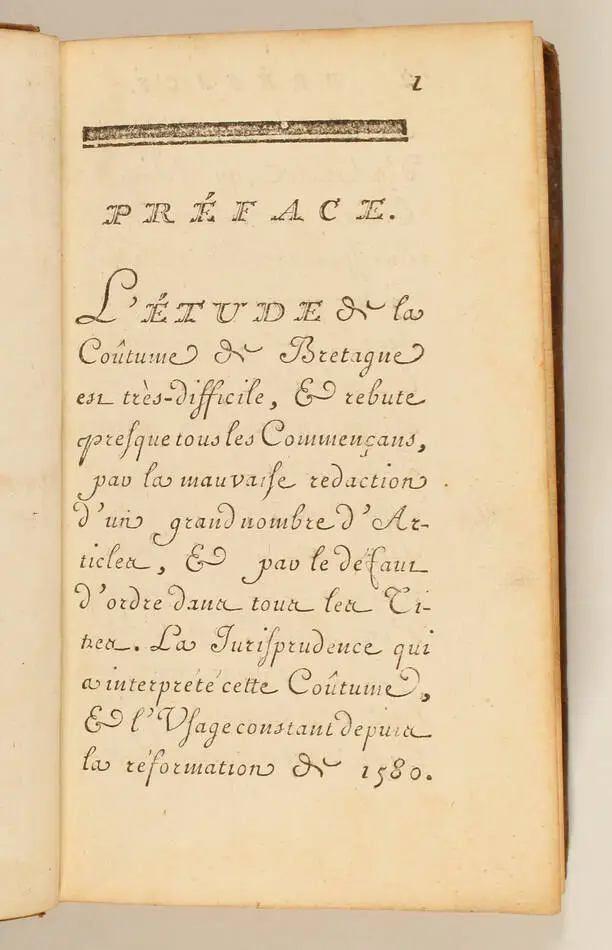 1
PRÉFACE.
L'ÉTUDE de la
Coûtume de Bretagne
est très-difficile, & rebute
presque tous les Commençans,
par la mauvaise redaction
d'un grand nombre d'Ar-
ticles, & par le défaut
d'ordre dans tous les Ti-
tres. La Jurisprudence qui
a interprété cette Coûtume,
& l'Usage constant depuis
la réformation de 1580.